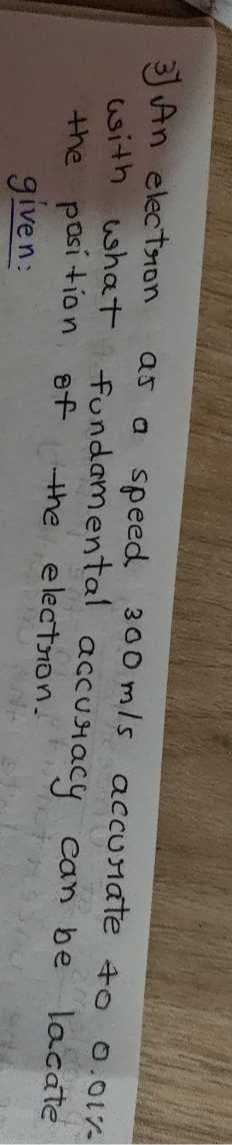 3) An electron as a speed 300 m/s accurate to 0.01%
with what fundamental accuracy can be lacate
the position of the electron.
given: